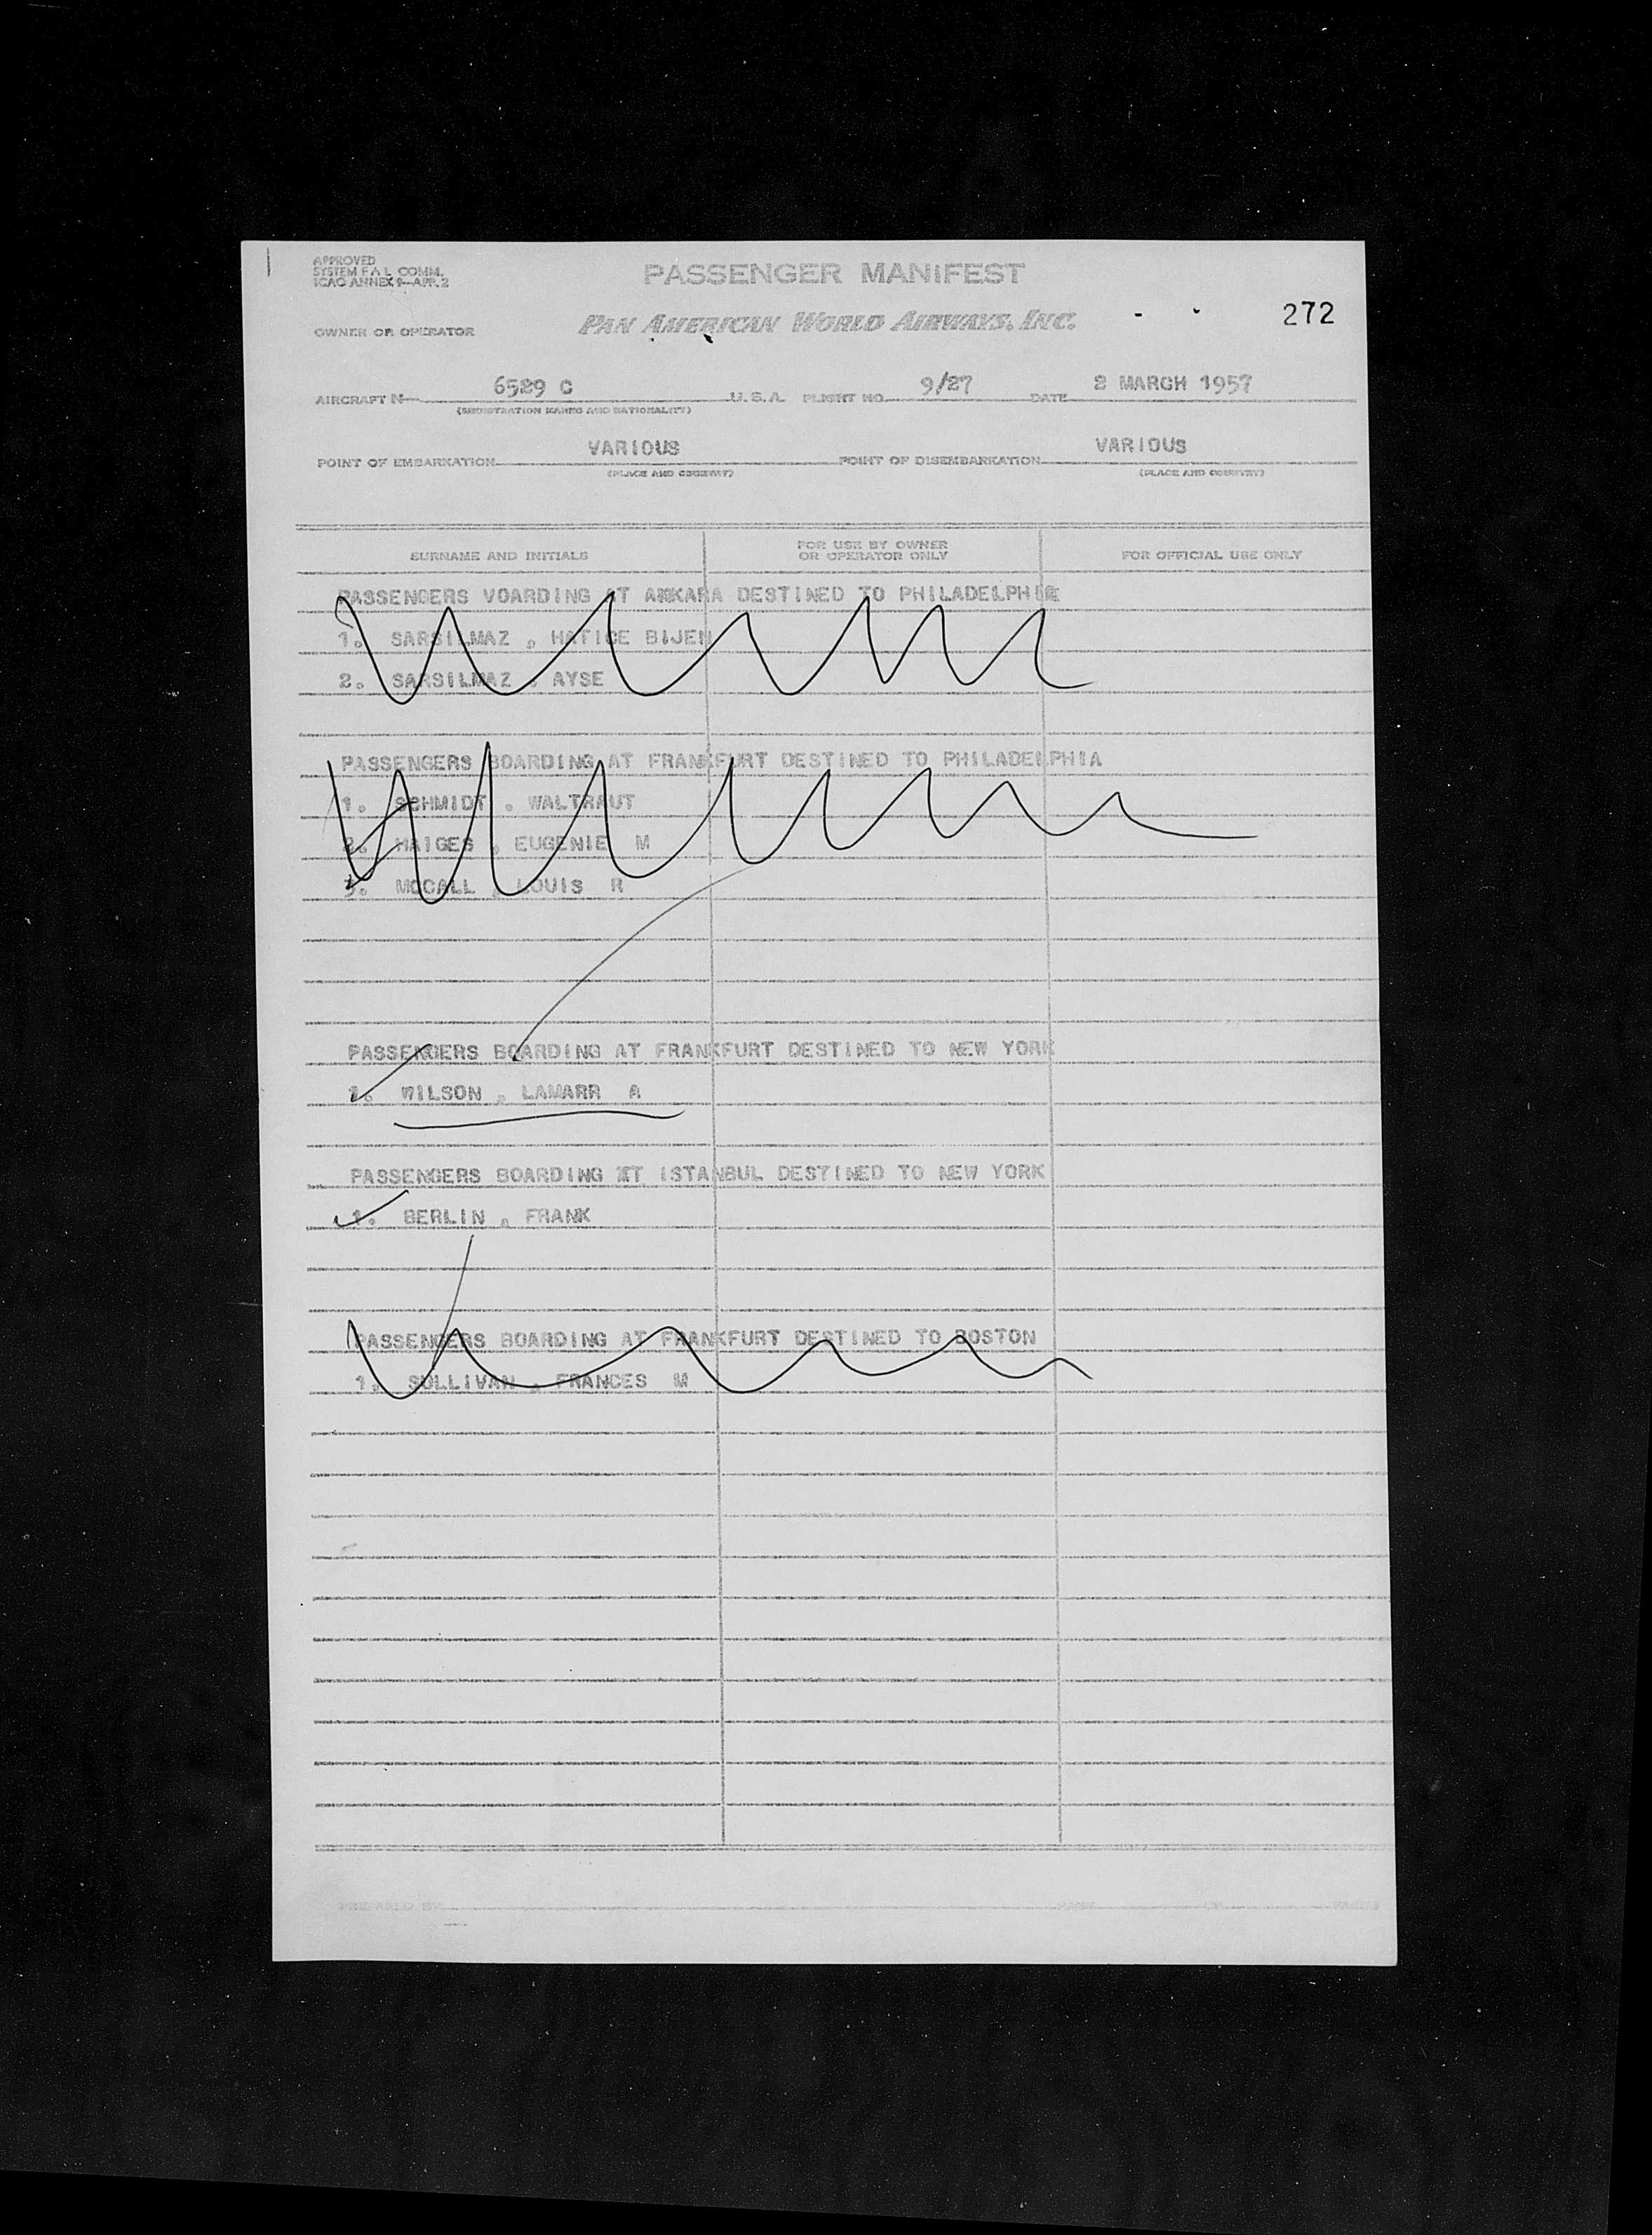 APPROVED
SYSTEM F A L COMM.
ICAO ANNEX 9—APP. 2
PASSENGER MANIFEST
272
OWNER OR OPERATOR
PAN AMERICAN WORLD AIRWAYS, INC.
AIRCRAFT N 6529 C U. S. A. FLIGHT NO. 9/27 DATE 2 MARCH 1957
(REGISTRATION MARKS AND NATIONALITY)
POINT OF EMBARKATION VARIOUS POINT OF DISEMBARKATION VARIOUS
(PLACE AND COUNTRY) (PLACE AND COUNTRY)
SURNAME AND INITIALS FOR USE BY OWNER OR OPERATOR ONLY FOR OFFICIAL USE ONLY
PASSENGERS VOARDING AT ANKARA DESTINED TO PHILADELPHIA
1. SARSILMAZ , HATICE BIJEN
2. SARSILMAZ , AYSE
PASSENGERS BOARDING AT FRANKFURT DESTINED TO PHILADELPHIA
1. SCHMIDT , WALTRAUT
2. HAIGES , EUGENIE M
3. MCCALL , LOUIS R
PASSENGERS BOARDING AT FRANKFURT DESTINED TO NEW YORK
1. WILSON , LAMARR A
PASSENGERS BOARDING AT ISTANBUL DESTINED TO NEW YORK
1. BERLIN , FRANK
PASSENGERS BOARDING AT FRANKFURT DESTINED TO BOSTON
1. SULLIVAN , FRANCES M
PREPARED BY PAGE OF PAGES